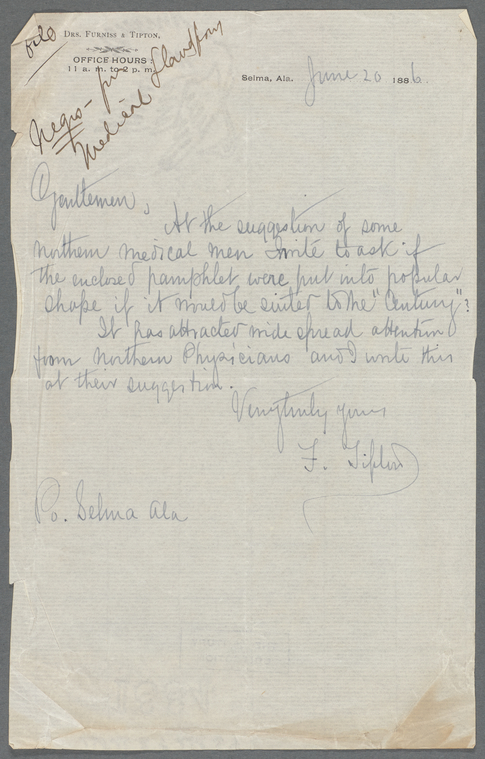 Drs. Furniss & Tipton,
OFFICE HOURS:
11 a. m. to 2 p. m.
Selma, Ala. June 20 1886.
Negro - from
Medical Standpoint
Gentlemen,
At the suggestion of some
northern medical men I write to ask if
the enclosed pamphlet were put into popular
shape if it would be suited to the "Century"?
It has attracted wide spread attention
from Northern Physicians and I write this
at their suggestion.
Very truly yours
F. Tipton
Po. Selma Ala